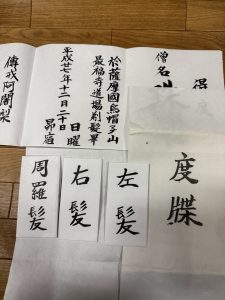 僧名
於薩摩國烏帽子山
最福寺道場剃髪畢
平成廿七年十二月二十日 日曜
昴宿
傳戒阿闍梨
度牒
左髪
右髪
周羅髪